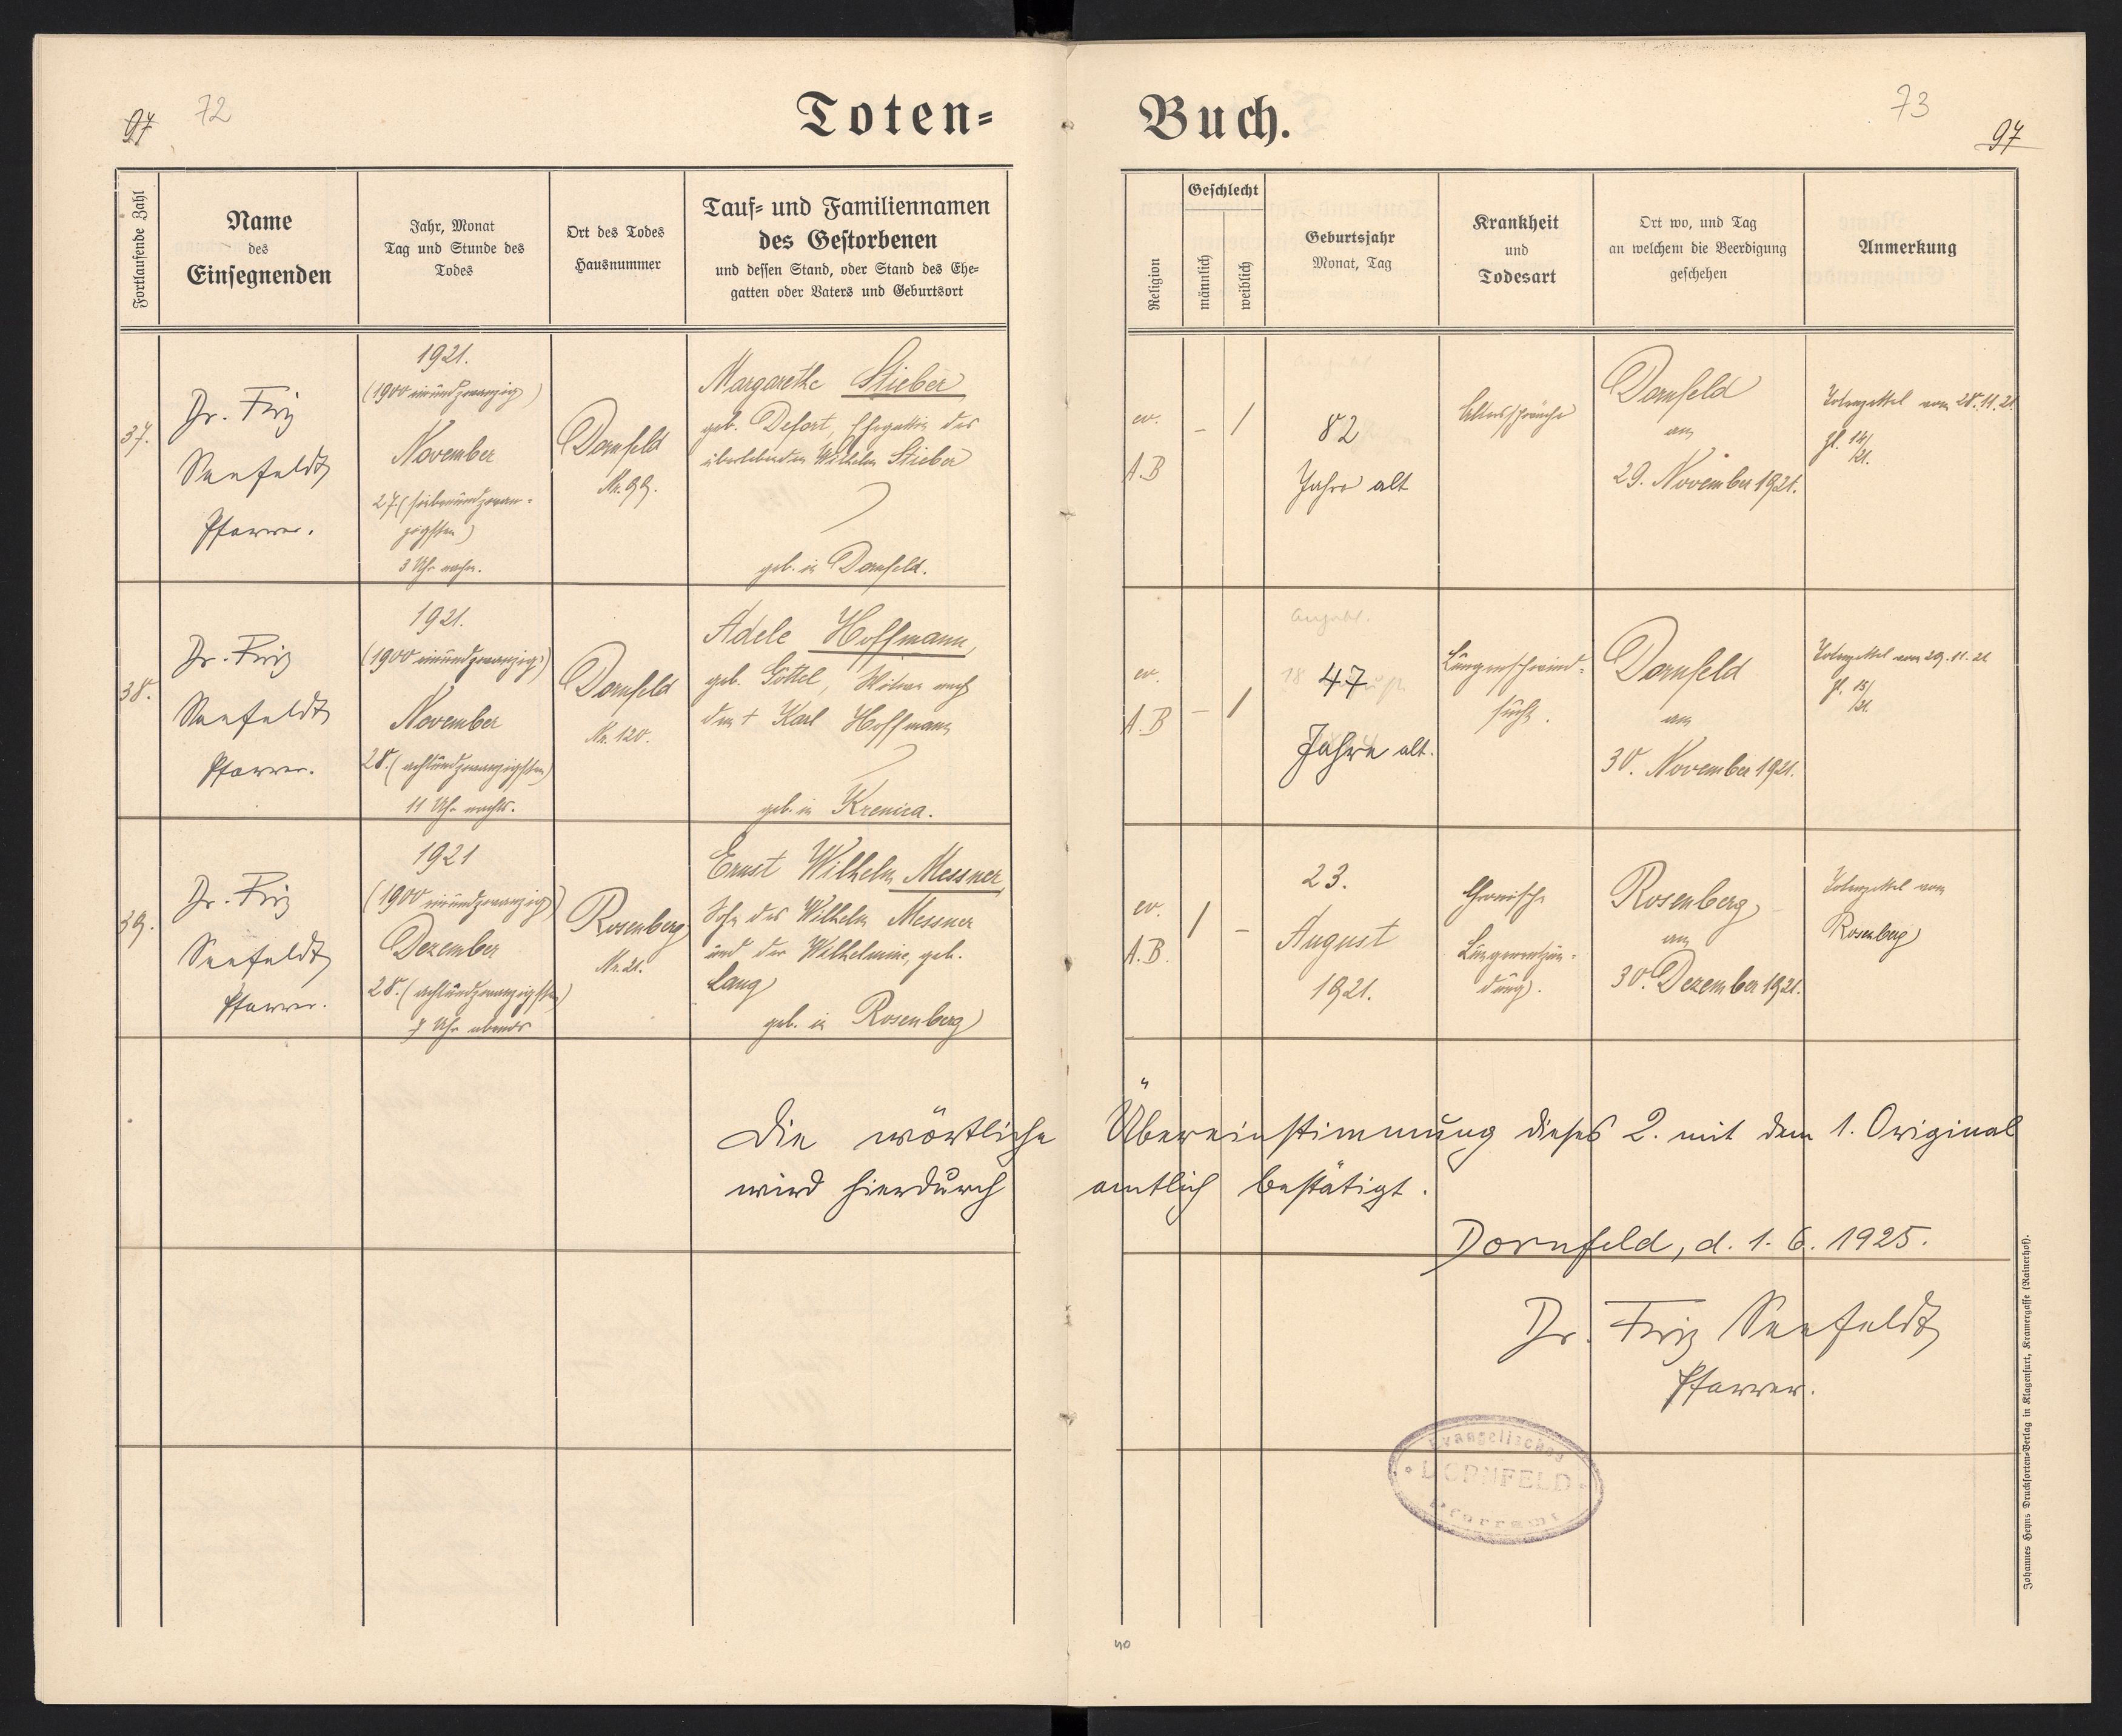 97 72
Toten=
Fortlaufende Zahl
Name
des
Einsegnenden
Jahr, Monat
Tag und Stunde des
Todes
Ort des Todes
Hausnummer
Tauf= und Familiennamen
des Gestorbenen
und dessen Stand, oder Stand des Ehe=
gatten oder Vaters und Geburtsort
37.
Dr. Friz
Seefeldt
Pfarrer.
1921.
(1900 einundzwanzig)
November
27 (siebenundzwan-
zigsten)
3 Uhr nachm.
Dornfeld
Nr. 99.
Margarethe Stieber
geb. Defort, Ehegattin des
überlebenden Wilhelm Stieber
geb. in Dornfeld.
38.
Dr. Friz
Seefeldt
Pfarrer.
1921.
(1900 einundzwanzig)
November
28. (achtundzwanzigsten)
11 Uhr nachts.
Dornfeld
Nr. 120.
Adele Hoffmann,
geb. Göttel, Witwe nach
dem † Karl Hoffmann
geb. in Krenica.
39.
Dr. Friz
Seefeldt
Pfarrer.
1921
(1900 einundzwanzig)
Dezember
28. (achtundzwanzigsten)
7 Uhr abends
Rosenberg
Nr. 21.
Ernst Wilhelm Messner
Sohn des Wilhelm Messner
und der Wilhelmine, geb.
Lang
geb. in Rosenberg
Buch.
73
97
Religion
Geschlecht
männlich
weiblich
Geburtsjahr
Monat, Tag
Krankheit
und
Todesart
Ort wo, und Tag
an welchem die Beerdigung
geschehen
Anmerkung
ev.
A.B
– /
82
Jahre alt
Altersschwäche
Dornfeld
am
29. November 1921.
Totenzettel vom 28.11.21.
Zl. 14/21.
ev.
A.B
– /
47
Jahre alt.
Lungenschwind-
sucht.
Dornfeld
am
30. November 1921.
Totenzettel vom 29.11.21
Zl. 15/21.
ev.
A.B.
/ –
23.
August
1921.
Chronische
Lungenentzün-
dung.
Rosenberg
am
30. Dezember 1921.
Totenzettel vom
Rosenberg
Die wörtliche Übereinstimmung dieses 2. mit dem 1. Original
wird hierdurch amtlich bestätigt.
Dornfeld, d. 1. 6. 1925.
Dr. Friz Seefeldt
Pfarrer.
Evangelisches
DORNFELD
Pfarramt
40
Johannes Heyns Drucksorten=Verlag in Klagenfurt, Kramergasse (Rainerhof).